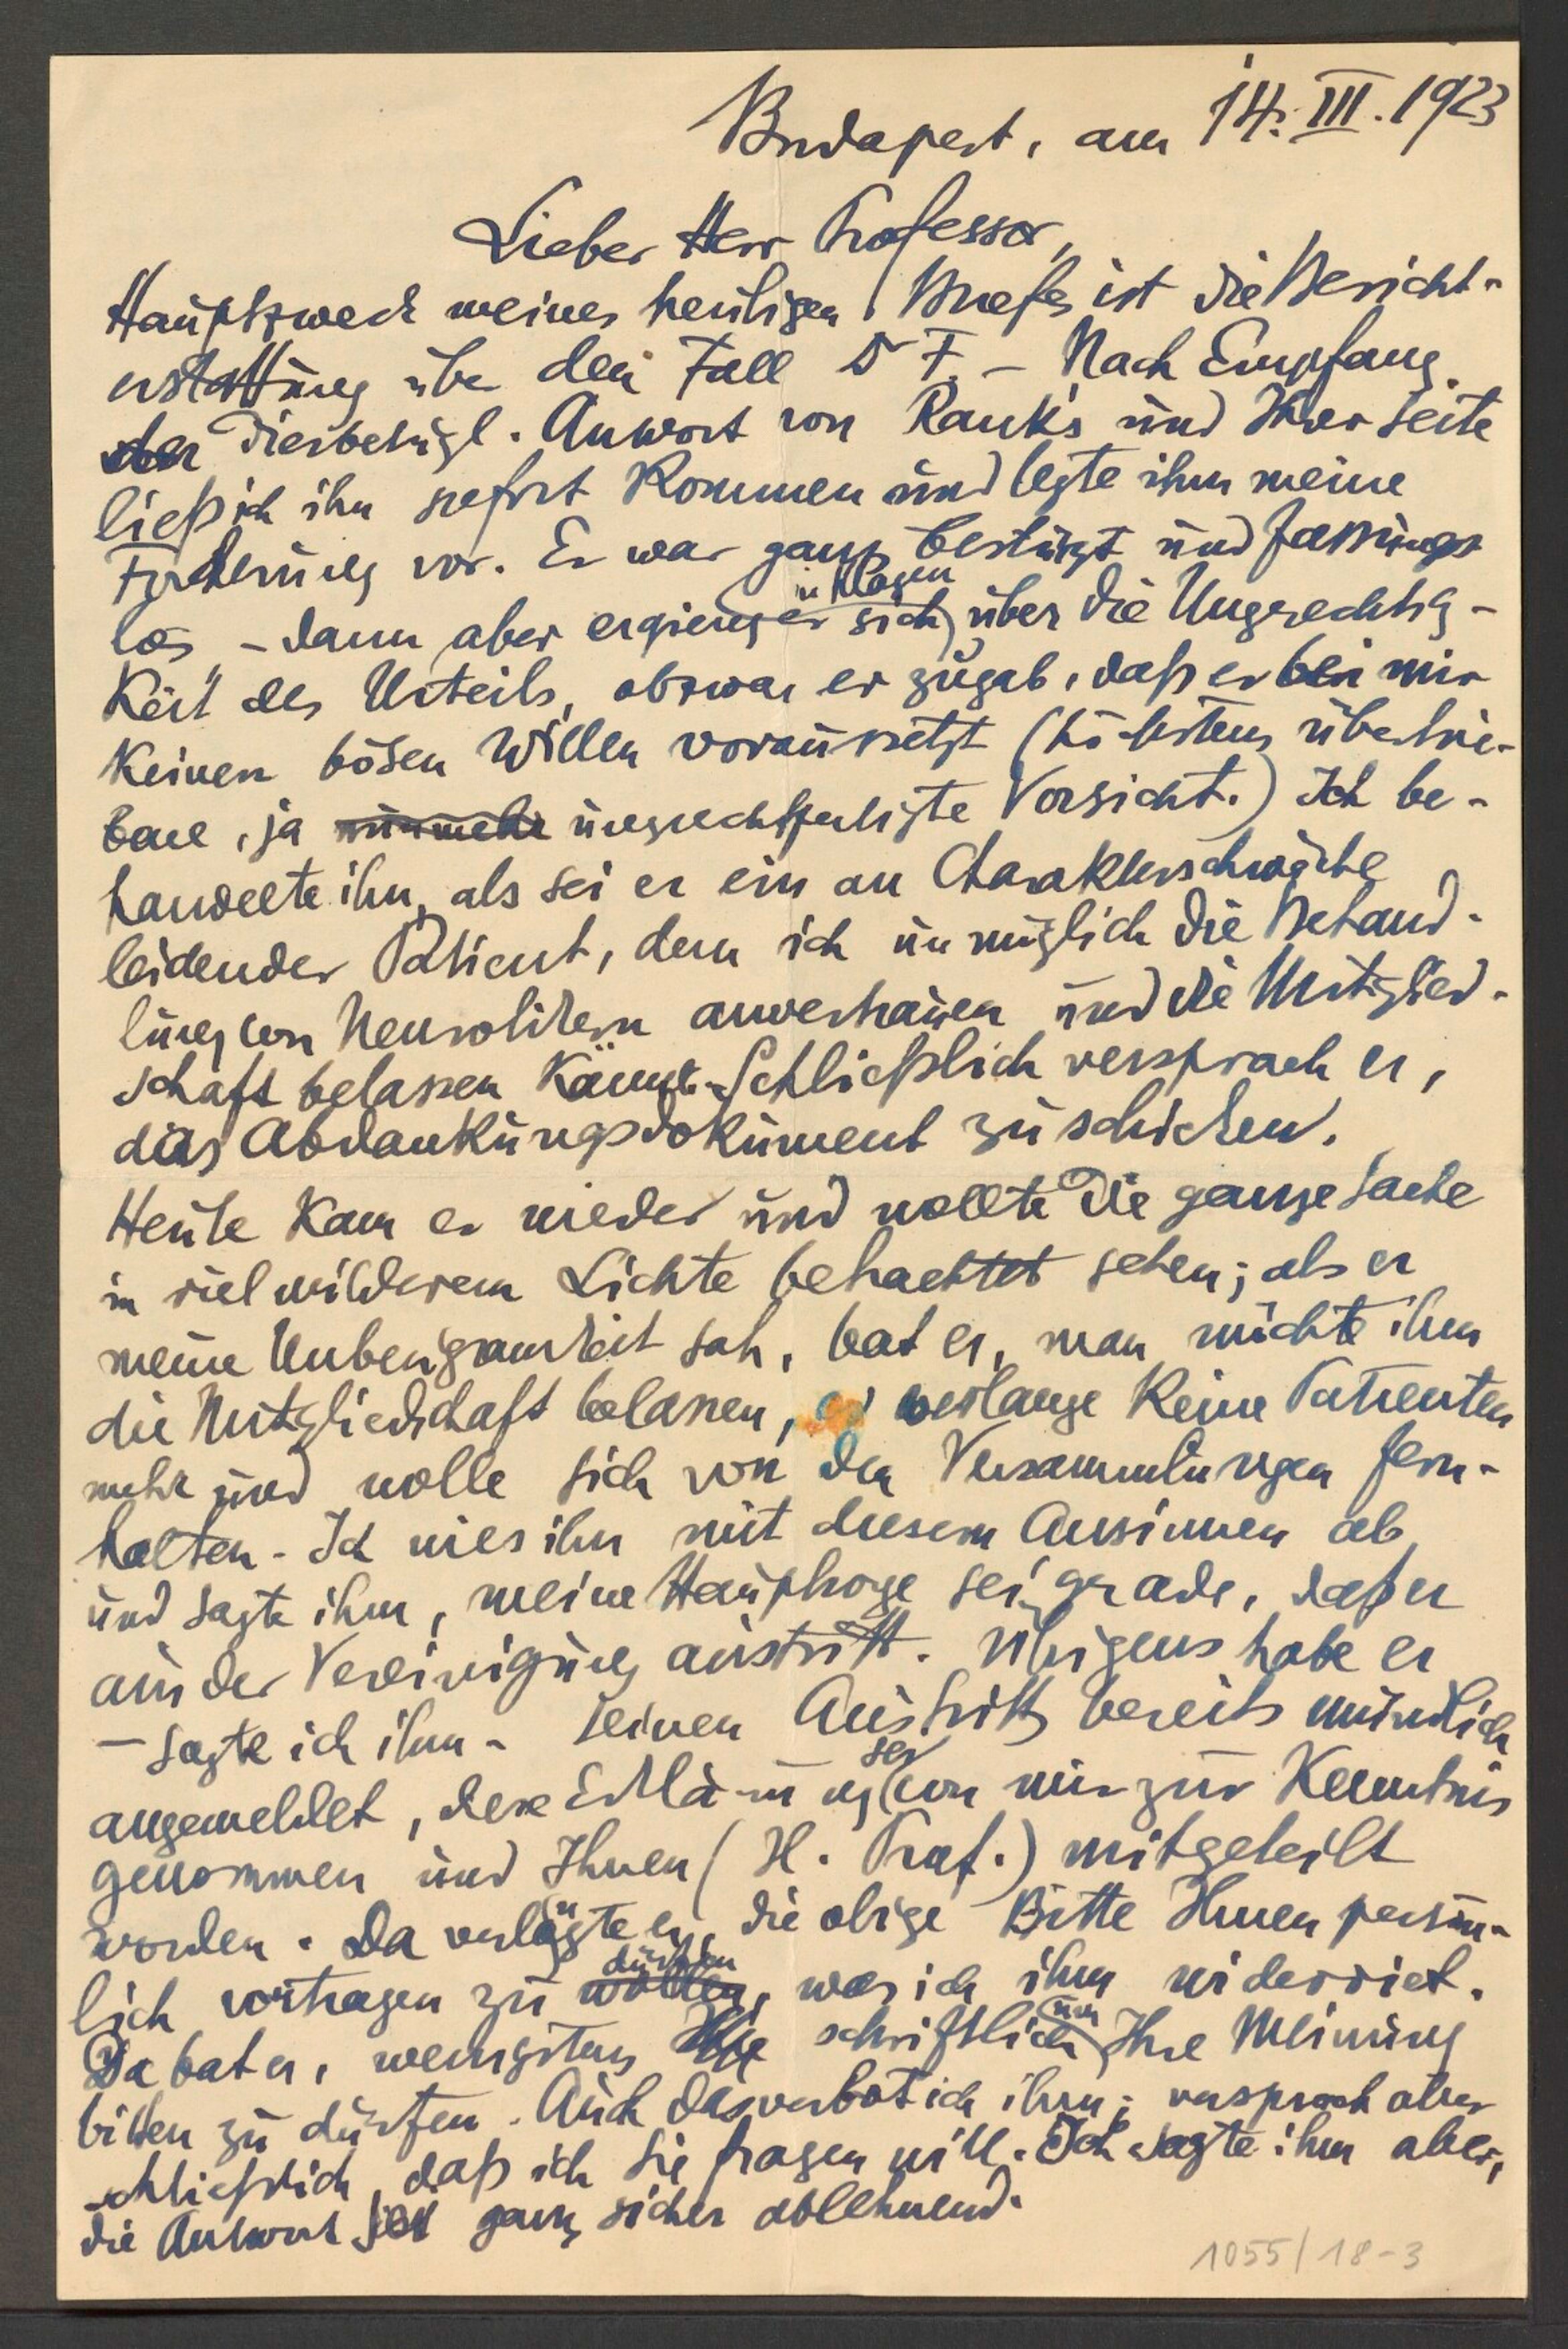 Budapest, am 14. III. 1923
Lieber Herr Professor,
Hauptzweck meines heutigen Briefes ist die Bericht-
erstattung über den Fall Dr F. – Nach Empfang
der diesbezügl. Antwort von Rank's und Ihrer Seite
ließ ich ihn sofort kommen und legte ihm meine
Forderung vor. Er war ganz bestürzt und fassungs
los – dann aber ergieng er sich in Klagen über die Ungerechtig-
keit des Urteils, obzwar er zugab, daß er bei mir
keinen bösen Willen voraussetzt (höchstens übertrie-
bene, ja nunmehr ungerechtfertigte Vorsicht.) Ich be-
handelte ihn, als sei er ein an Charakterschwäche
leidender Patient, dem ich unmöglich die Behand-
lung von Neurotikern anvertrauen und die Mitglied-
schaft belassen könnte. Schließlich versprach er,
das Abdankungsdokument zu schicken.
Heute kam er wieder und wollte die ganze Sache
in viel milderem Lichte betrachtet sehen; als er
meine Unbeugsamkeit sah, bat er, man möchte ihm
die Mitgliedschaft belassen, er verlange keine Patienten
mehr und wolle sich von den Versammlungen fern-
halten. – Ich wies ihn mit diesem Ansinnen ab
und sagte ihm, meine Hauptsorge sei grade, daß er
aus der Vereinigung austritt. Übrigens habe er
– sagte ich ihm – seinen Austritt bereits mündlich
angemeldet, diese Erklärung sei von mir zur Kenntnis
genommen und Ihnen (H. Prof.) mitgeteilt
worden. Da verlangte er, die obige Bitte Ihnen persön-
lich vortragen zu wollen dürfen, was ich ihm widerriet.
Da bat er, wenigstens Ihre schriftlich um Ihre Meinung
bitten zu dürfen. Auch das verbot ich ihm; versprach aber
schließlich, daß ich Sie fragen will. Ich sagte ihm aber,
die Antwort sei ganz sicher ablehnend.
1055/18-3